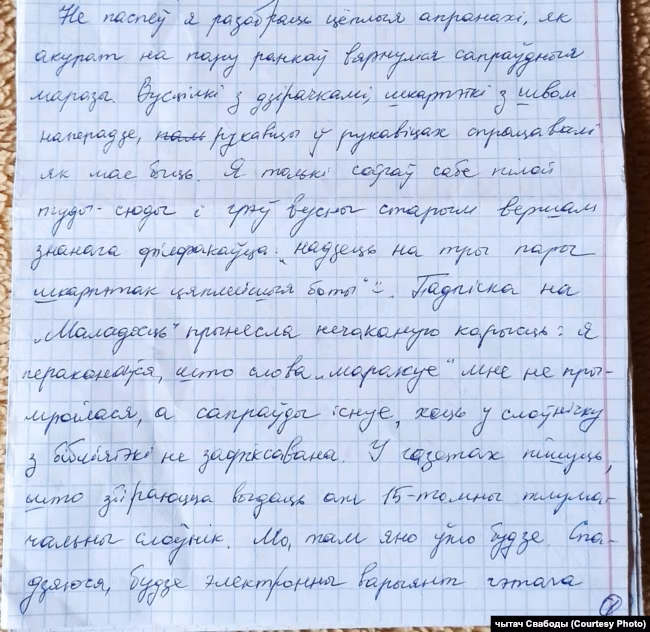 Не паспеў я разабраць цёплыя апранахі, як
акурат на пару ранкаў вярнуліся сапраўдныя
маразы. Вусцілкі з дзірачкамі, шкарпэткі з швом
наперадзе, рукавіцы ў рукавіцах спрацавалі
як мае быць. Я толькі соваў сабе пілой
туды-сюды і грэў вусны старым вершам
знанага філфакаўца: „надзець на тры пары
шкарпэтак цяплейшыя боты“ =. Падпіска на
„Маладосць“ прынесла нечаканую карысць: я
пераканаўся, што слова „маражуе“ мне не пры-
мроілася, а сапраўды існуе, хоць у слоўнічку
з бібліятэкі не зафіксавана. У газетах пішуць,
што збіраюцца выдаць аж 15-томны тлума-
чальны слоўнік. Мо, там яно ўжо будзе. Спа-
дзяюся, будзе электронны варыянт гэтага
чытач Свабоды (Courtesy Photo)